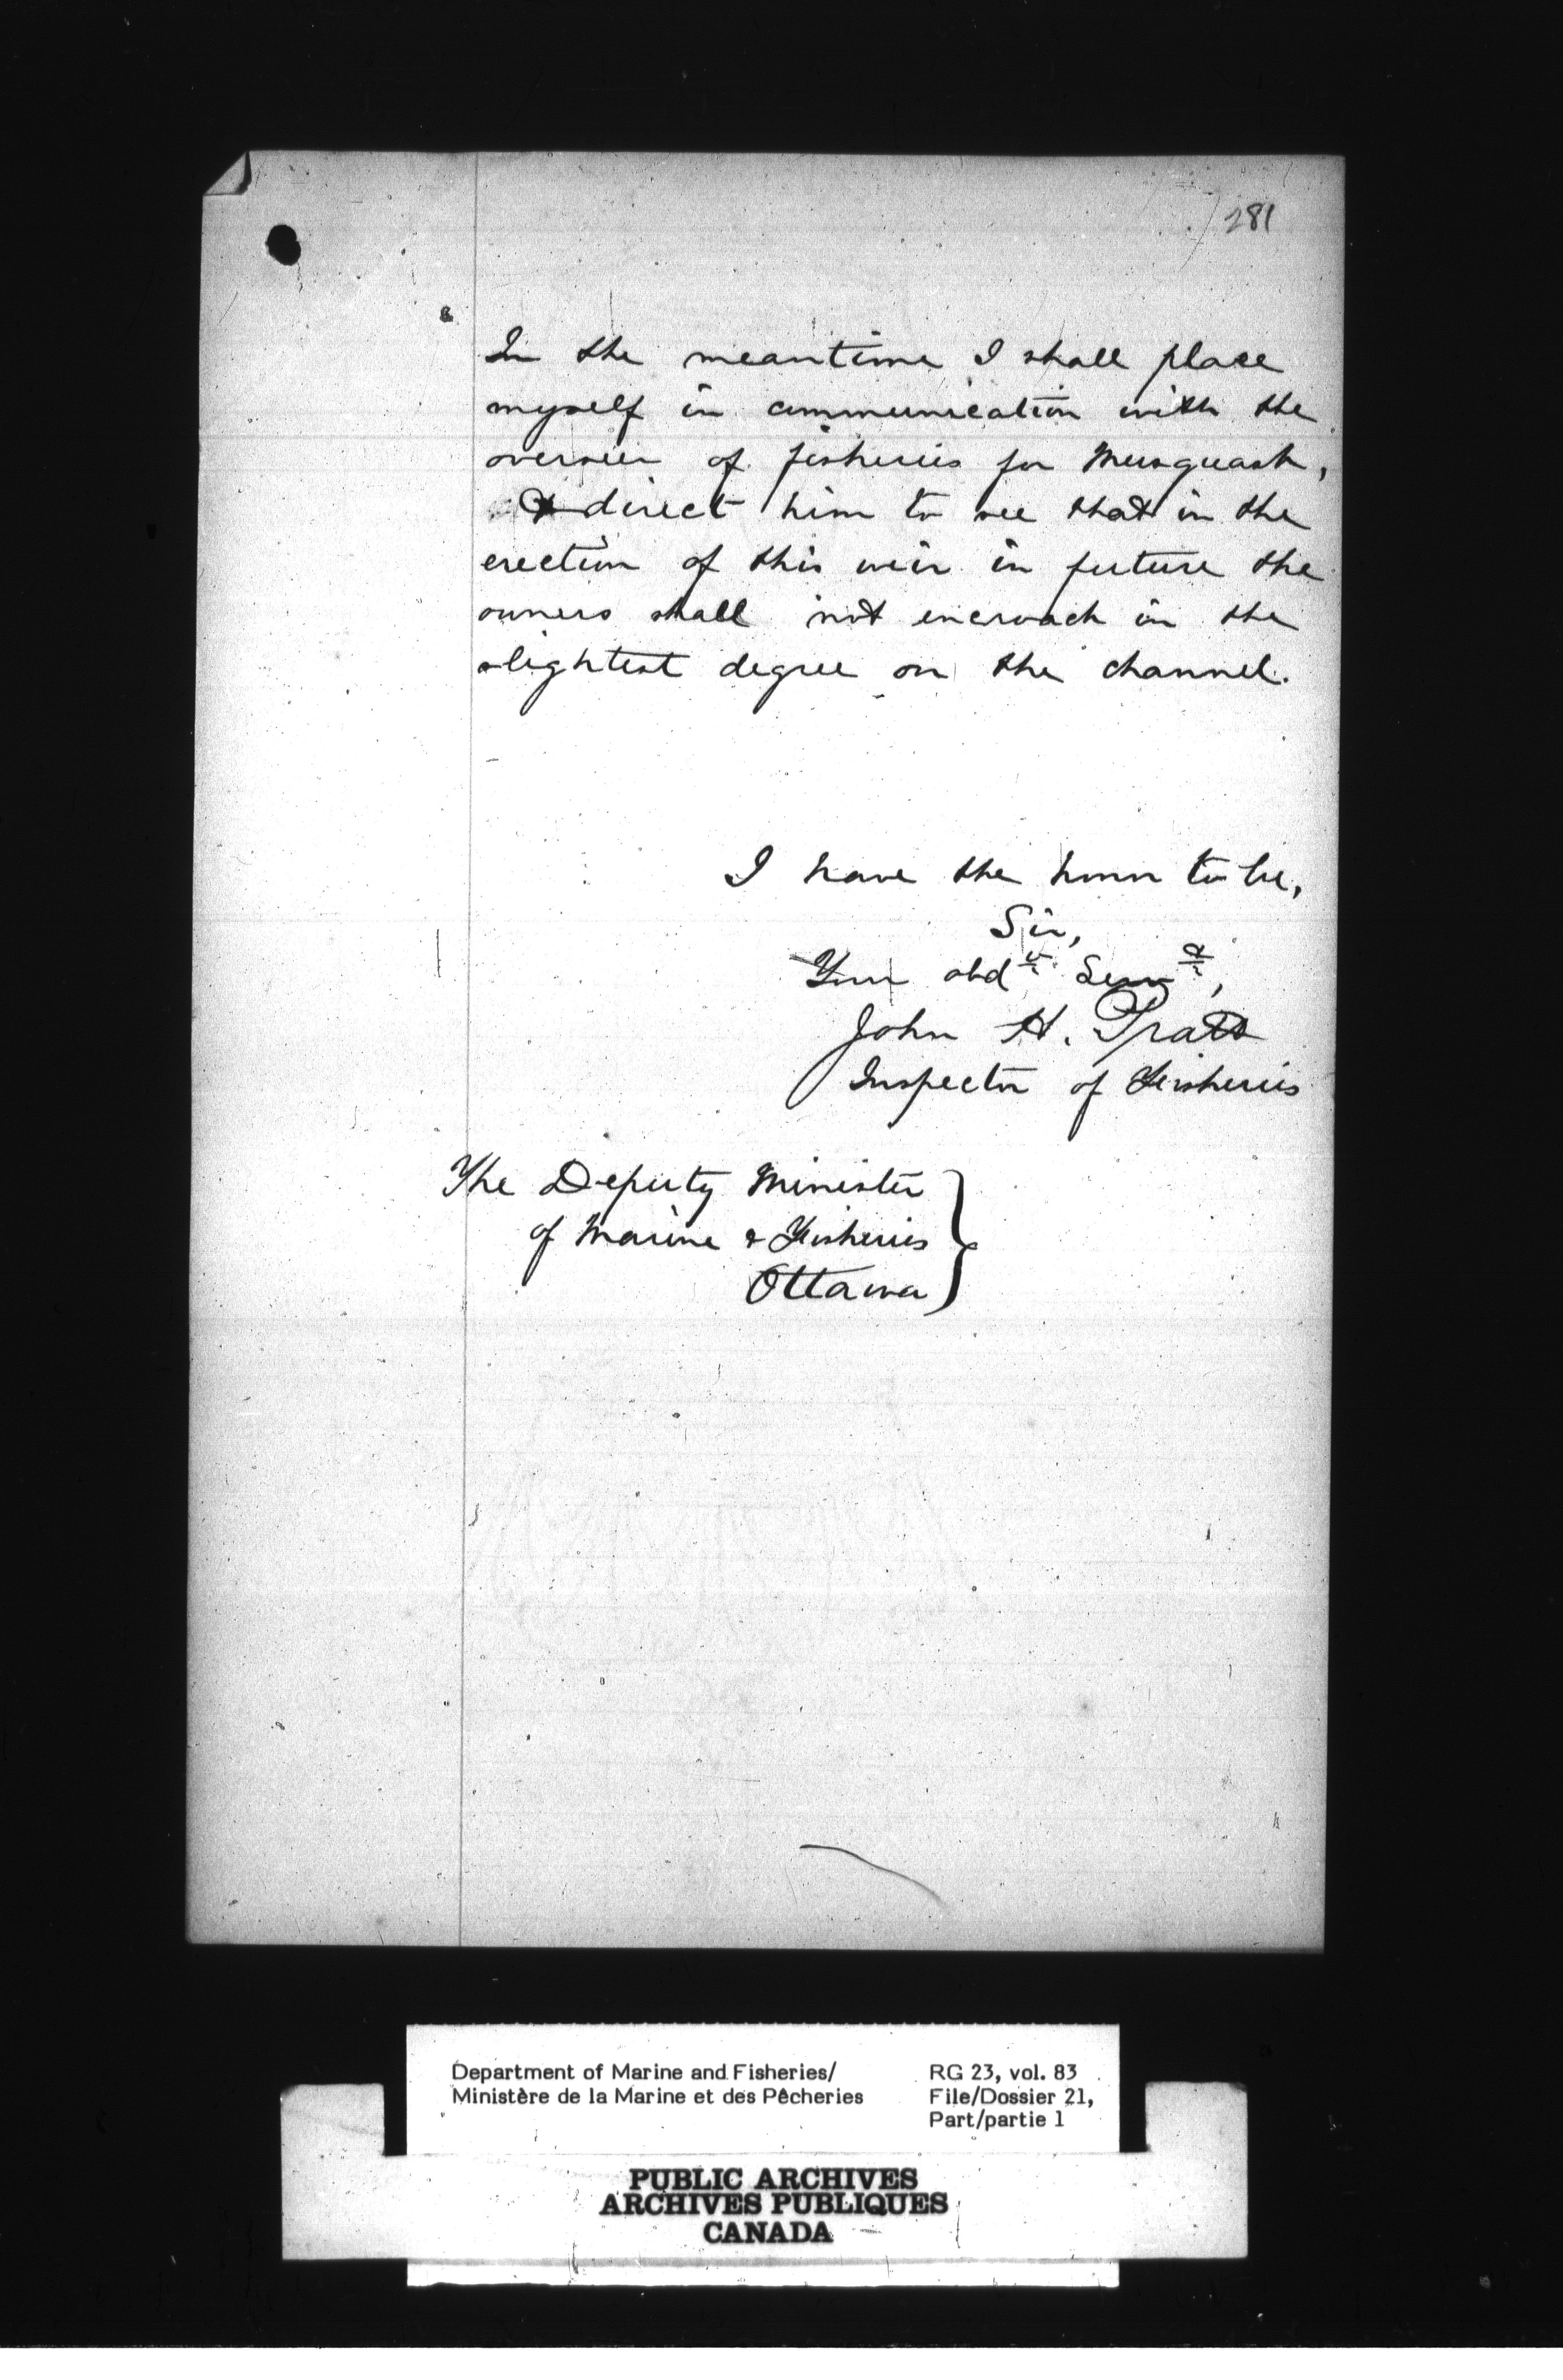 281
In the meantime I shall place
myself in communication with the
overseer of fisheries for Musquash,
& direct him to see that in the
erection of this weir in future the
owners shall not encroach in the
slightest degree on the channel.
I have the honor to be,
Sir,
Your obdt Servt,
John H. Pratt
Inspector of Fisheries
The Deputy Minister
of Marine & Fisheries
Ottawa
Department of Marine and Fisheries/
Ministère de la Marine et des Pêcheries
RG 23, vol. 83
File/Dossier 21,
Part/partie 1
PUBLIC ARCHIVES
ARCHIVES PUBLIQUES
CANADA